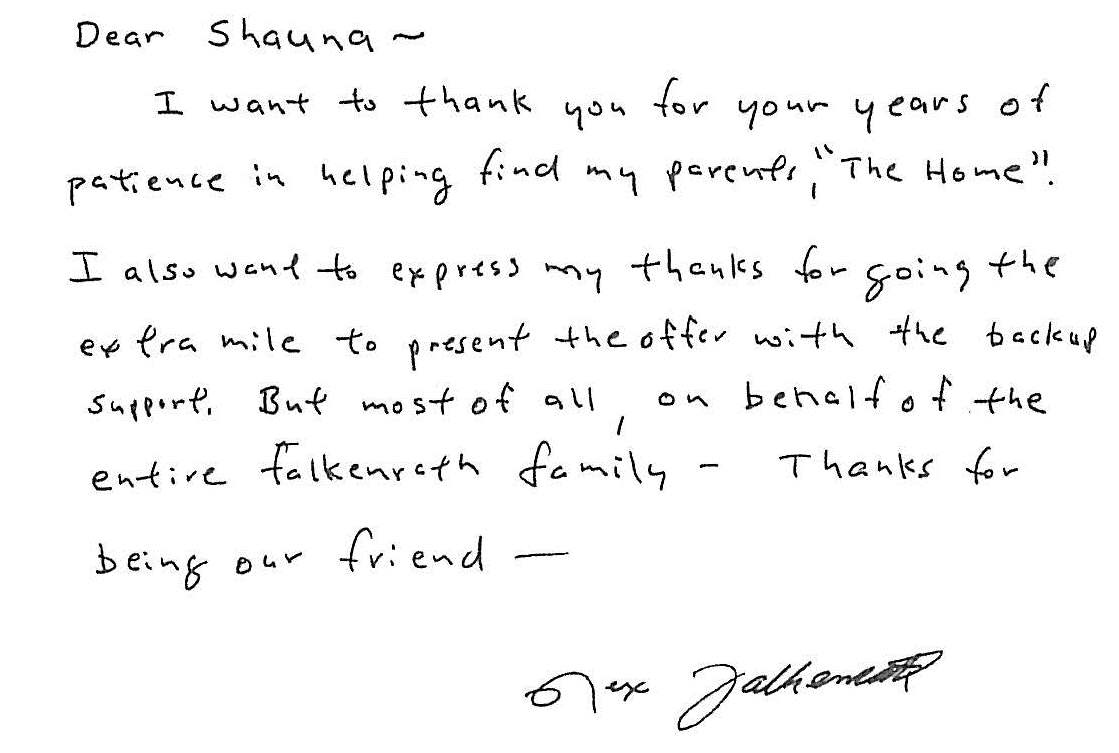 Dear Shauna ~
I want to thank you for your years of
patience in helping find my parents, "The Home".
I also want to express my thanks for going the
extra mile to present the offer with the backup
support. But most of all, on behalf of the
entire Falkenrath family - Thanks for
being our friend —
Rex Falkenrath